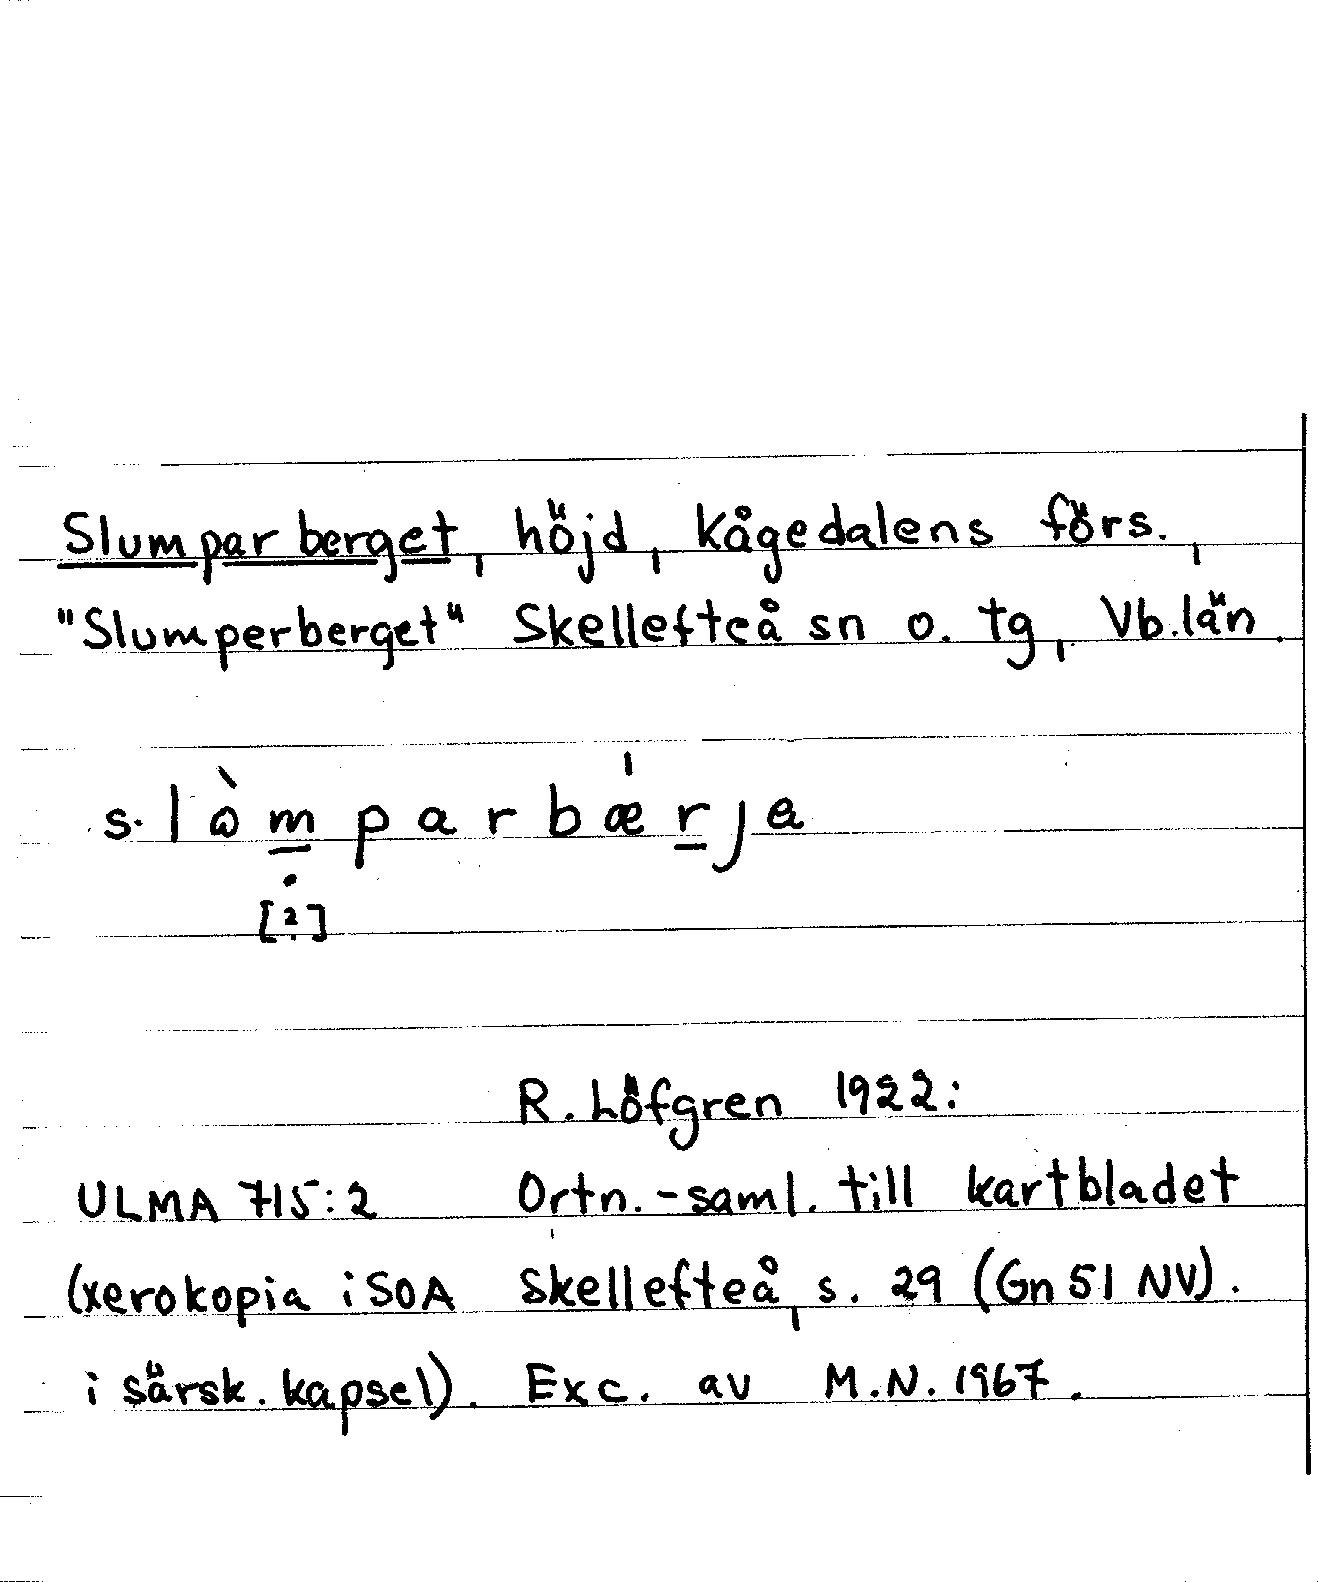 Slumparberget, höjd, Kågedalens förs.,
"Slumperberget" Skellefteå sn o. tg, Vb.län.
s. lòmparbærja
[?]
R. Löfgren 1922:
ULMA 715:2 Ortn.-saml. till kartbladet
(xerokopia i SOA Skellefteå, s. 29 (Gn 51 NV).
i särsk. kapsel). Exc. av M.N. 1967.